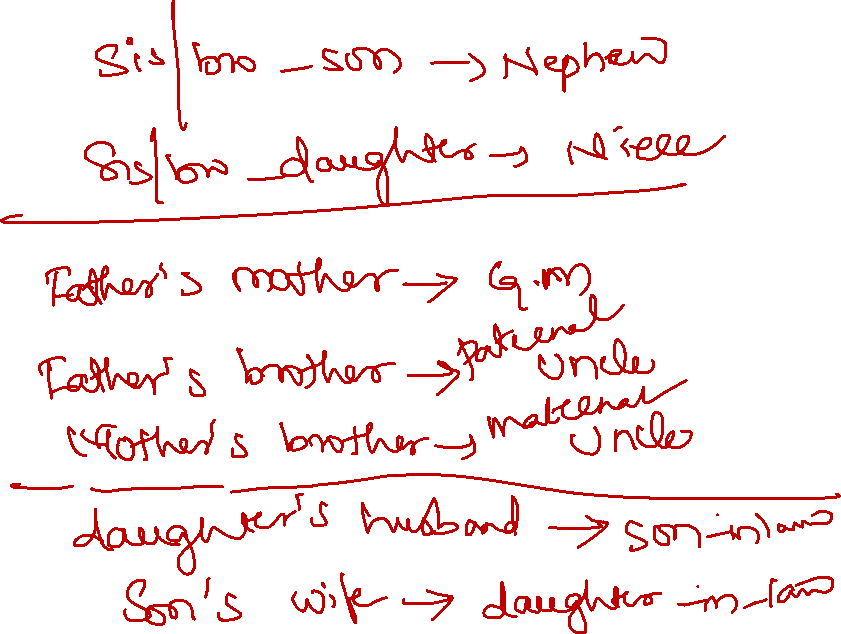 Sis/bro - son → Nephew
Sis/bro - daughter → Niece
Father's mother → G.m
Father's brother → Paternal uncle
Mother's brother → maternal uncle
daughter's husband → son-in law
Son's wife → daughter-in-law